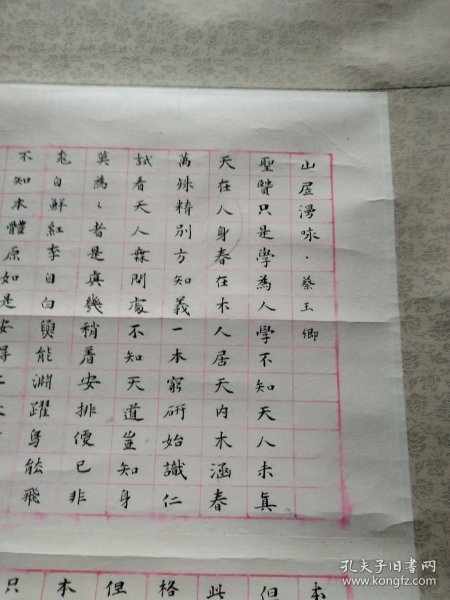 山屋漫咏·蔡玉卿
聖賢只是學為人學不知天人未真
天在人身春在木人居天內木涵春
萬殊精別方知義一本窮研始識仁
試看天人無間處不知天道豈知身
莫為、者是真機稍著安排便已非
自鮮紅李自白奠能淵躍鳥能飛
不知本體原如是安得
本
但
此
格
但
本
只
孔夫子旧书网
www.kongfz.com